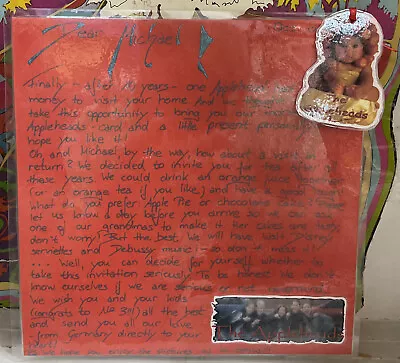 Dear Michael
Finally - after 10 years - one Applehead
money to visit your home. And we thought
take this opportunity to bring you our
Appleheads - card and a little present personally
hope you like it!
Oh, and Michael, by the way, how about a visit in
return? We decided to invite you for tea after all
these years. We could drink an orange juice together
(or an orange tea if you like) and have a good time.
What do you prefer: Apple Pie or chocolate cake? Please
let us know a day before you arrive so we can ask
one of our grandmas to make it (her cakes are tasty,
don't worry). But the best: We will have Walt Disney
serviettes and Debussy music! - so don't miss it!
... Well, you can decide for yourself whether to
take this invitation seriously. To be honest: We don't
know ourselves if we are serious or not
We wish you and your kids
(congrats to No 3!!) all the best
and send you all our love
from Germany directly to your
heart!
We hope you enjoy the pictures
The
Appleheads
The Appleheads